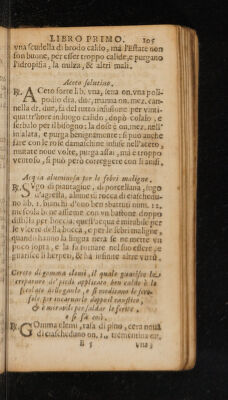 LIBRO PRIMO. 105
vna scudella di brodo caldo, ma l'estate non
son buone, per esser troppo calide, e purgano
l'idropisia, la milza, & altri mali.
Aceto solutiuo.
℞. ACeto forte lib. vna, sena on. vna poli-
podio dra. due, manna on. mez. can-
nella dr. due, fa del tutto infusione per vinti-
quattr'hore in luogo calido, dopò colalo, e
serbalo per il bisogno; la dose è on. mez. nell'
insalata, e purga benignamente: si può anche
fare con le rose damaschine infuse nell'aceto,
mutate noue volte, purga assai, ma è troppo
ventoso, si può però correggere con li anisi.
Acqua aluminosa per le febri maligne.
℞. SVgo di piantagine, di porcellana, sugo
d'agresta, alume di rocca di ciascheduno
lib. 1. bianchi d'ouo ben sbattuti num. 12.
mescola bene assieme con vn bastone doppo
distilla per boccia: quest'acqua è mirabile per
le vlcere della bocca, e per le febri maligne,
quando hanno la lingua nera se ne mette vn
poco sopra, e la fa tornare nel suo essere,
guarisce li herpeti, & hà infinite altre virtù.
Ceroto di gomma elemi, il quale guarisce le
crepature de' piedi applicato ben caldo è la
piegatura
& è mirabile per saldar le ferite,
e si fa così.
℞. GOmma elemi, rasa di pino, cera noua
di ciascheduno on. trementina on.
vna;